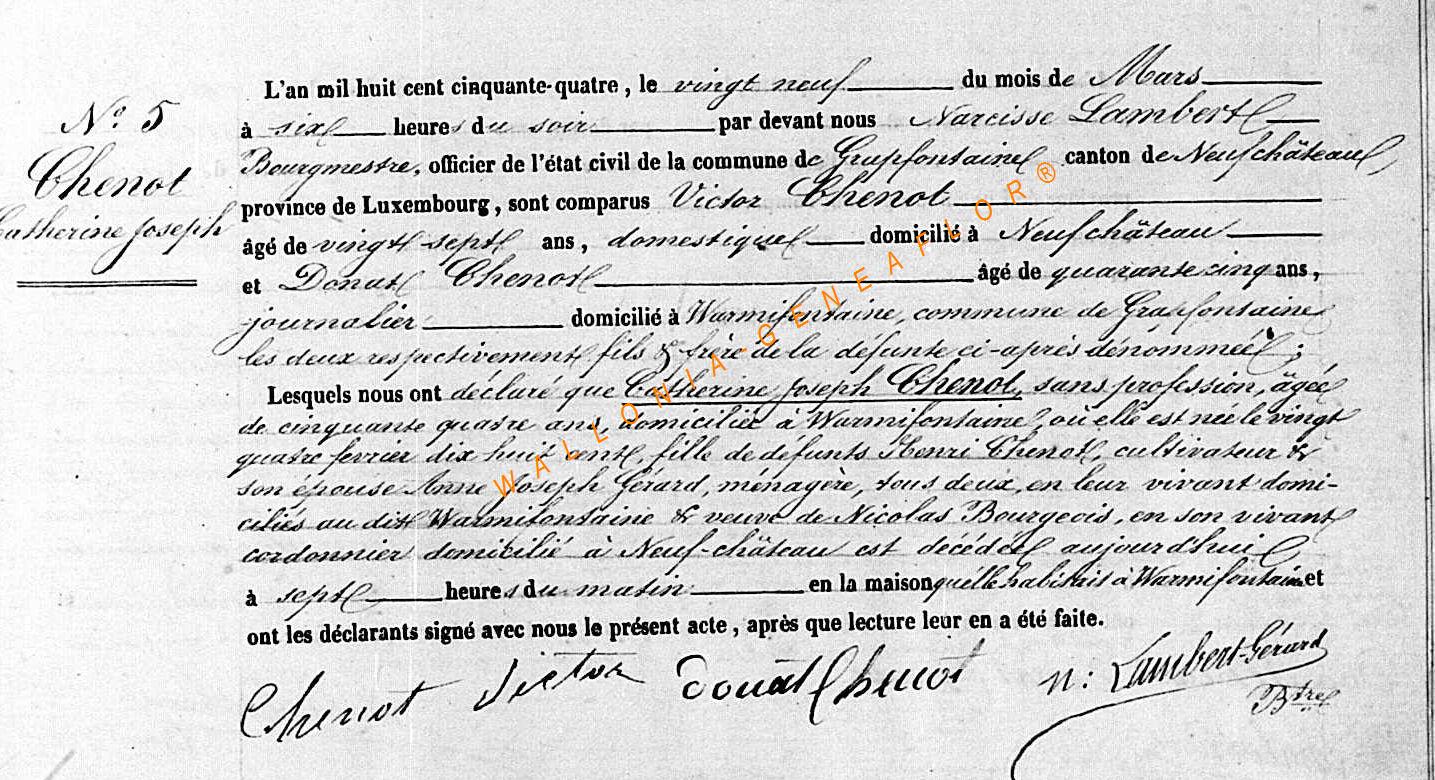 N° 5
Chenot
Catherine Joseph
L'an mil huit cent cinquante-quatre, le vingt neuf du mois de Mars
à six heures du soir par devant nous Narcisse Lambert
Bourgmestre, officier de l'état civil de la commune de Grapfontaine canton de Neufchâteau,
province de Luxembourg, sont comparus Victor Chenot
âgé de vingt sept ans, domestique domicilié à Neufchâteau
et Donat Chenot âgé de quarante cinq ans,
journalier domicilié à Warmifontaine, commune de Grapfontaine
les deux respectivement fils & frère de la défunte ci-après dénommée;
Lesquels nous ont déclaré que Catherine Joseph Chenot, sans profession, âgée
de cinquante quatre ans, domiciliée à Warmifontaine, où elle est née le vingt
quatre fevrier dix huit cent, fille de défunts Henri Chenot, cultivateur &
son épouse Anne Joseph Gérard, ménagère, tous deux, en leur vivant domi-
ciliés au dit Warmifontaine & veuve de Nicolas Bourgeois, en son vivant
cordonnier domicilié à Neuf-château est décédée aujourd'hui
à sept heures du matin en la maison qu'elle habitait à Warmifontaine et
ont les déclarants signé avec nous le présent acte, après que lecture leur en a été faite.
Chenot Victor Donat Chenot n: Lambert-Gérard
Btre
WALLONIA-GENEAFLOR®